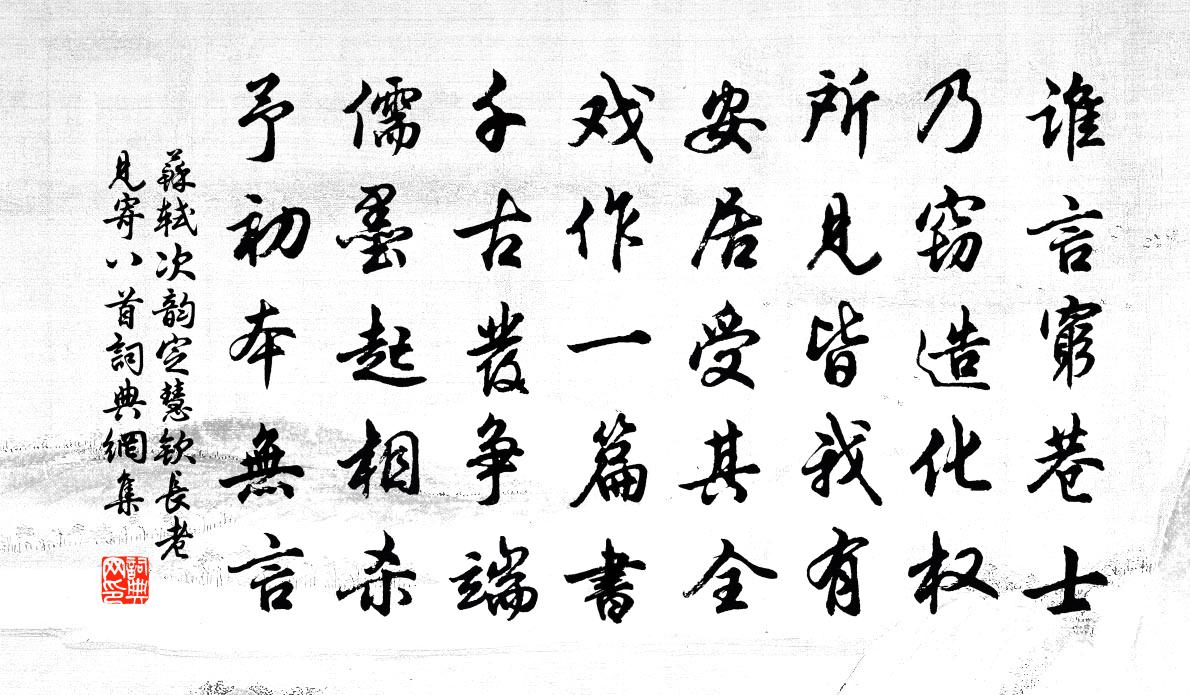 谁言窮巷士
乃窃造化权
所見皆我有
安居受其全
戏作一篇書
千古發争端
儒墨起相杀
予初本無言
蘇轼次韵定慧欽長老
見寄八首詞典網集
詞典网印